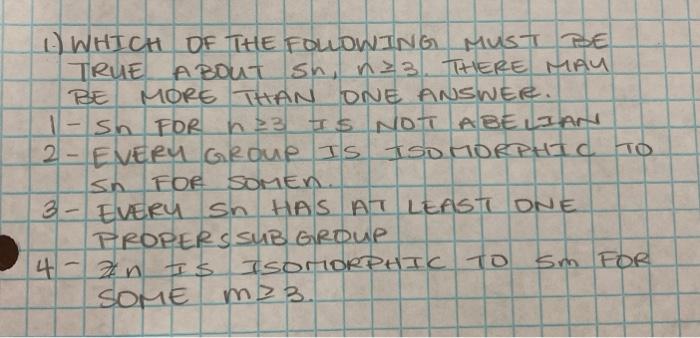 1.) WHICH OF THE FOLLOWING MUST BE
TRUE ABOUT Sn, n≥3. THERE MAY
BE MORE THAN ONE ANSWER.
1 - Sn FOR n≥3 IS NOT ABELIAN
2 - EVERY GROUP IS ISOMORPHIC TO
Sn FOR SOMEn.
3 - EVERY Sn HAS AT LEAST ONE
PROPERSSUBGROUP
4 - Zn IS ISOMORPHIC TO Sm FOR
SOME m≥3.